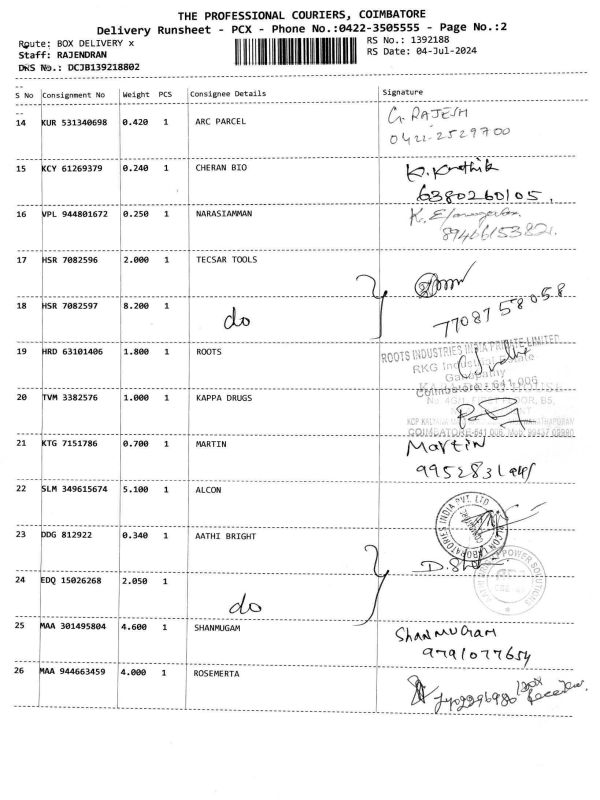 THE PROFESSIONAL COURIERS, COIMBATORE
Delivery Runsheet - PCX - Phone No.:0422-3505555 - Page No.:2
Route: BOX DELIVERY x
RS No.: 1392188
Staff: RAJENDRAN
RS Date: 04-Jul-2024
DRS No.: DCJB139218802
S No Consignment No Weight PCS Consignee Details Signature
14 KUR 531340698 0.420 1 ARC PARCEL G. RAJESH
0422-2529700
15 KCY 61269379 0.240 1 CHERAN BIO K. Karthik
6380260105.
16 VPL 944801672 0.250 1 NARASIAMMAN
17 HSR 7082596 2.000 1 TECSAR TOOLS
18 HSR 7082597 8.200 1 do
7708758058
19 HRD 63101406 1.800 1 ROOTS ROOTS INDUSTRIES INDIA PRIVATE LIMITED
RKG Industrial Estate
Ganapathy
Coimbatore - 641 006
20 TVM 3382576 1.000 1 KAPPA DRUGS
21 KTG 7151786 0.700 1 MARTIN Martin
22 SLM 349615674 5.100 1 ALCON
23 DDG 812922 0.340 1 AATHI BRIGHT
24 EDQ 15026268 2.050 1 do
POWER SOLUTIONS
25 MAA 301495804 4.600 1 SHANMUGAM Shanmugam
9791077654
26 MAA 944663459 4.000 1 ROSEMERTA